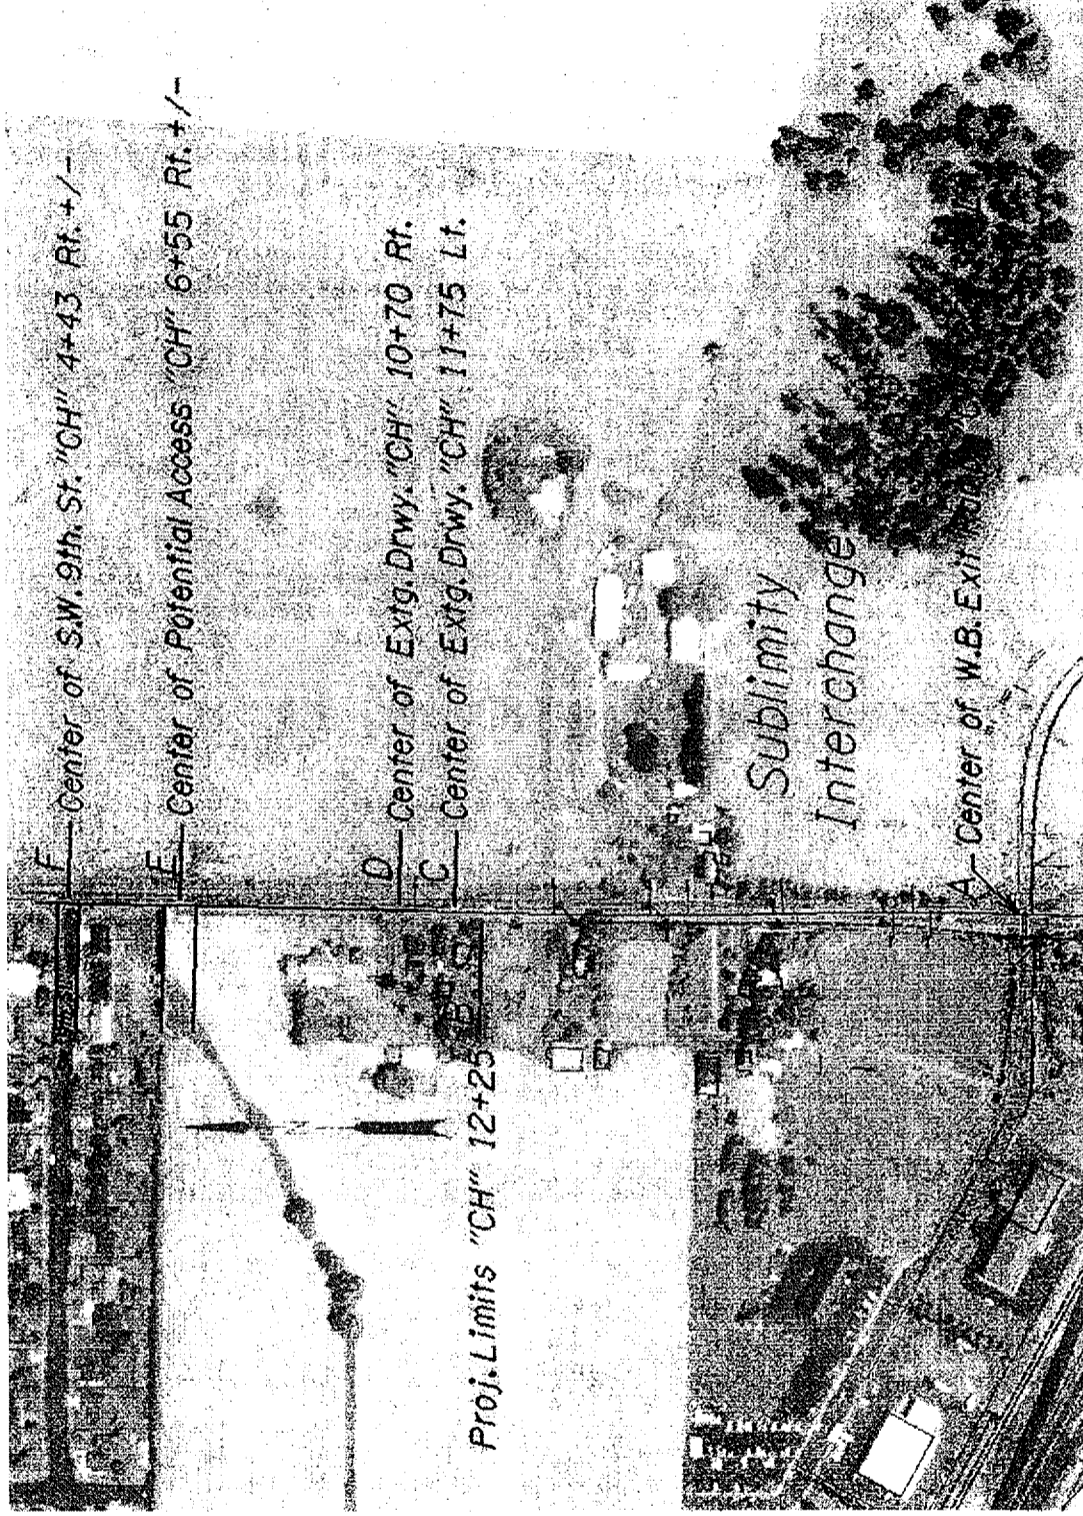 F
Center of S.W. 9th. St. "CH" 4+43 Rt. +/-
E
Center of Potential Access "CH" 6+55 Rt. +/-
D
Center of Extg. Drwy. "CH" 10+70 Rt.
C
Center of Extg. Drwy. "CH" 11+75 Lt.
Proj. Limits "CH" 12+25
Sublimity
Interchange
A
Center of W.B. Exit